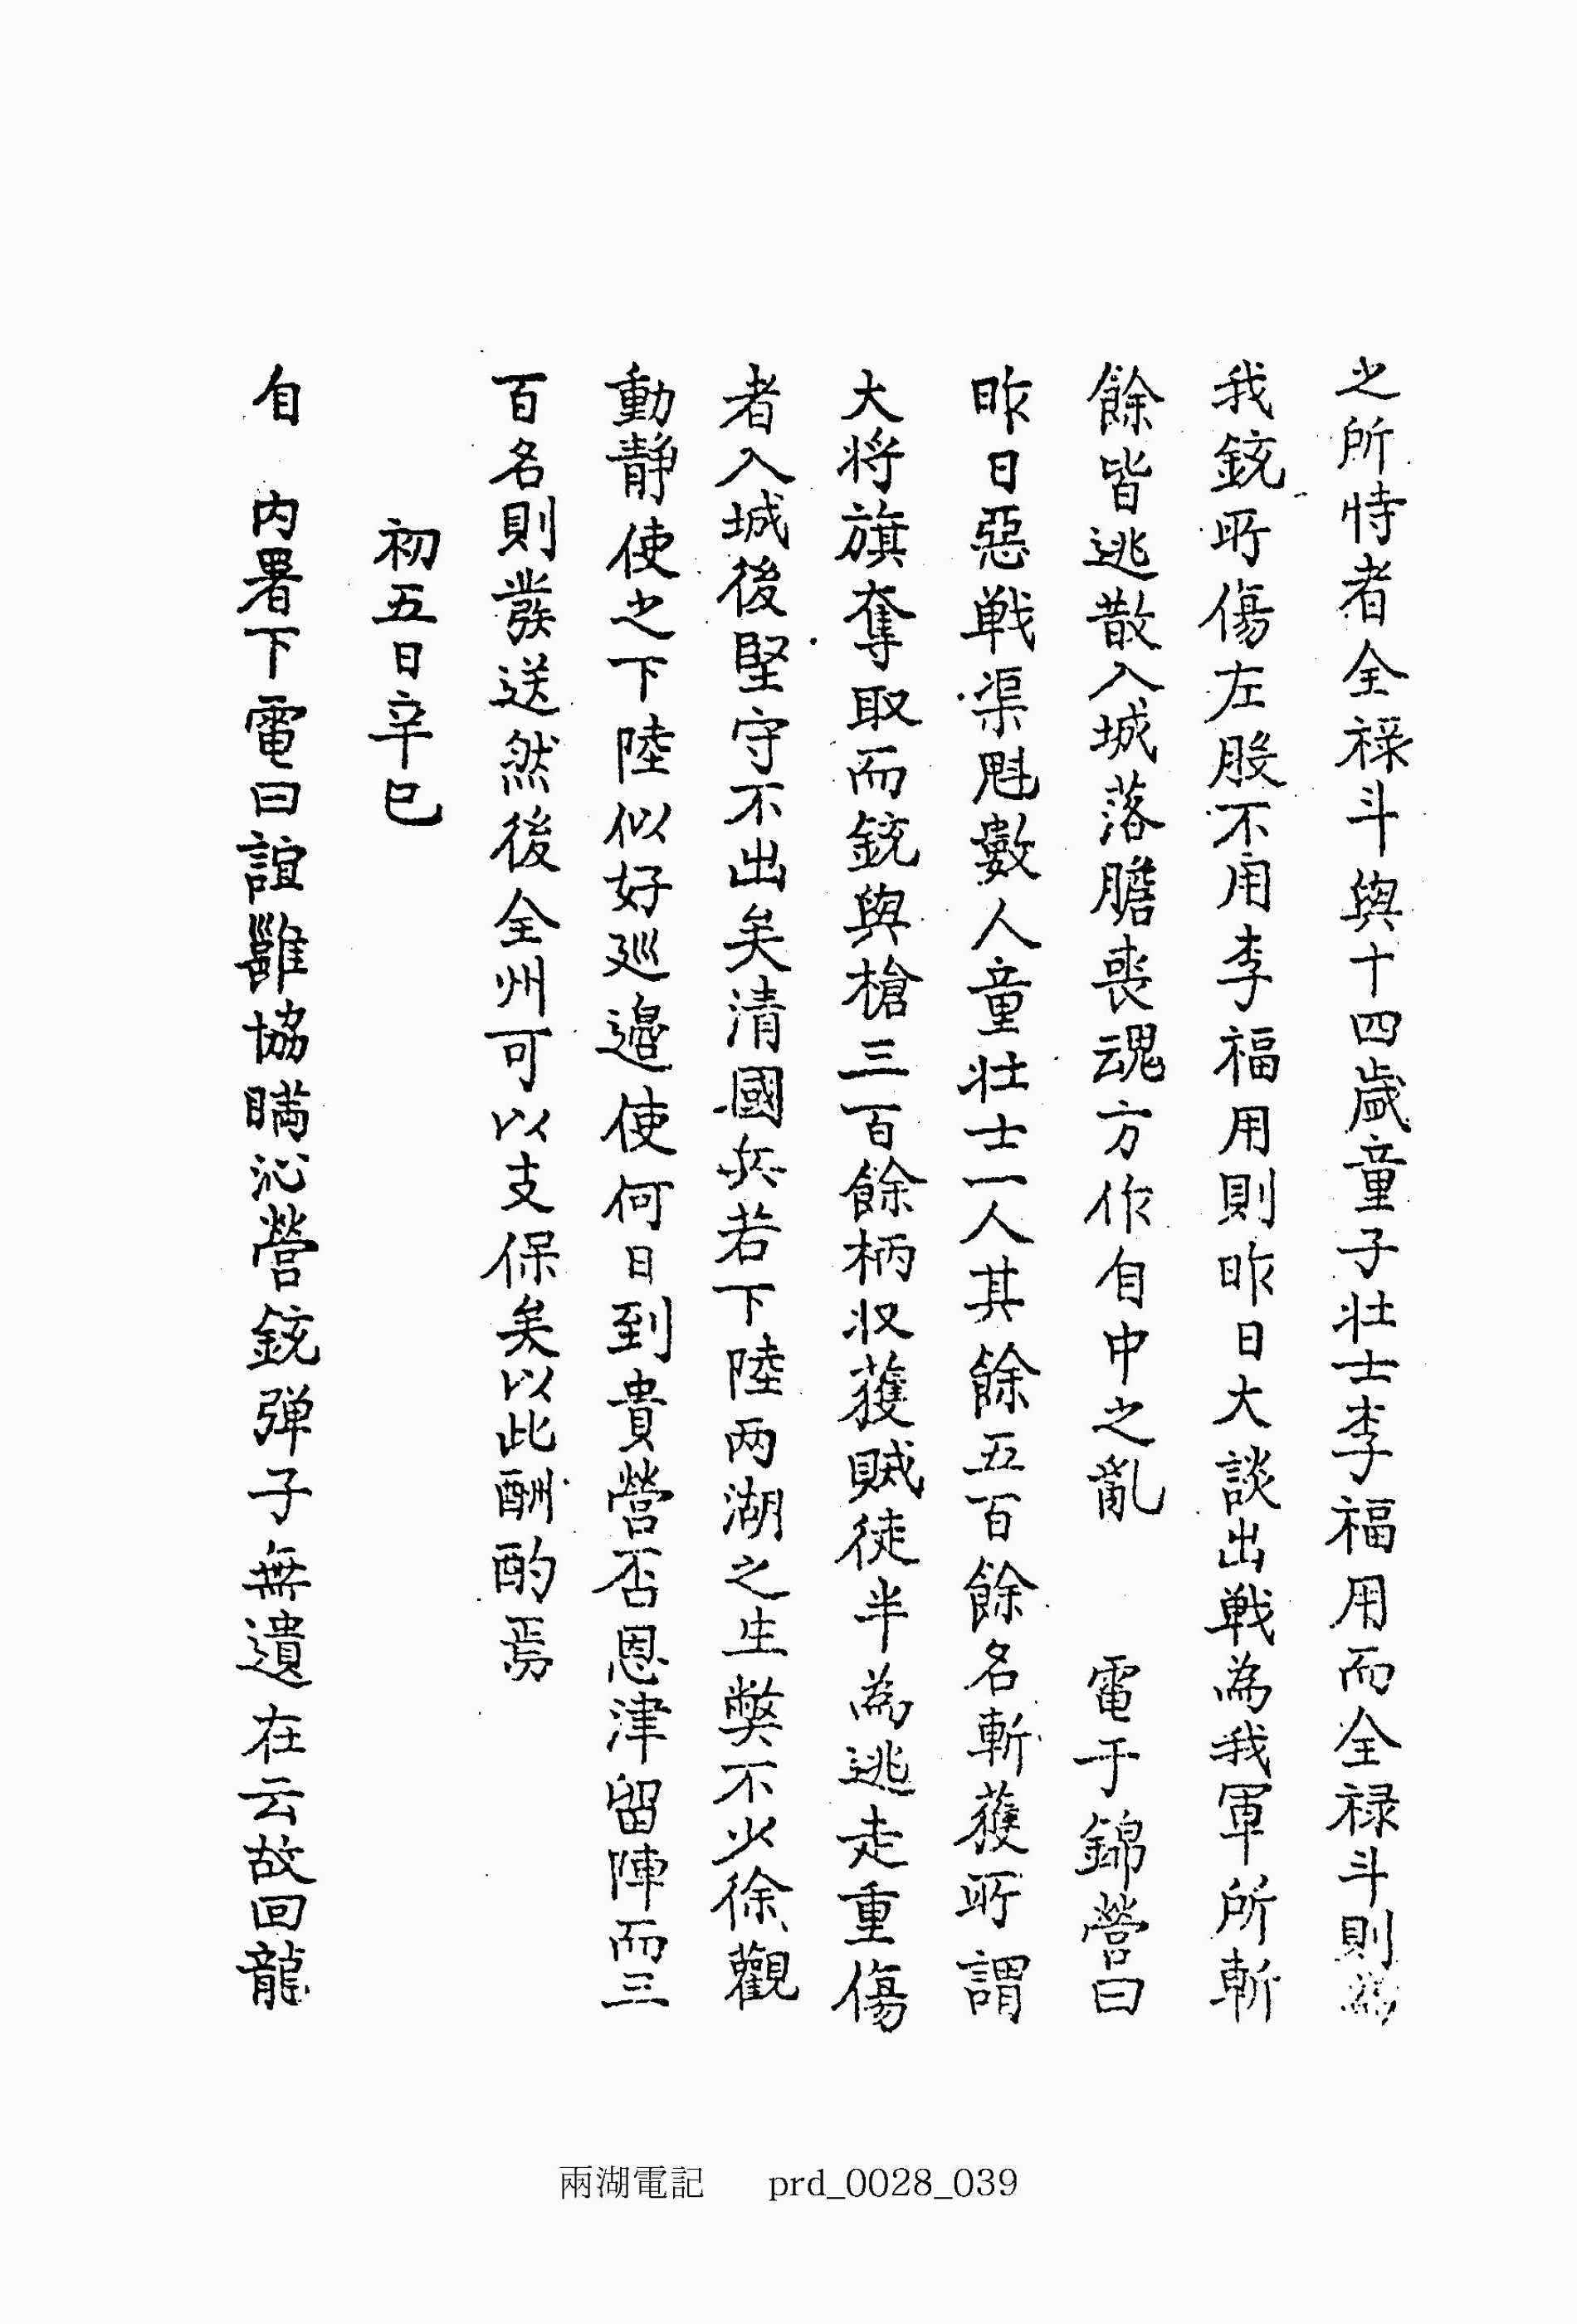 之所恃者全祿斗與十四歲童子壯士李福用而全祿斗則爲
我銃所傷左股不用李福用則昨日大談出戰爲我軍所斬
餘皆逃散入城落膽喪魂方作自中之亂　電于錦營曰
昨日惡戰渠魁數人童壯士一人其餘五百餘名斬獲所謂
大將旗奪取而銃與槍三百餘柄収獲賊徒半爲逃走重傷
者入城後堅守不出矣清國兵若下陸两湖之生獘不少徐觀
動靜使之下陸似好廵邉使何日到貴營否恩津留陣而三
百名則發送然後全州可以支保矣以此酬酌焉
初五日辛巳
自　內署下電曰誼雖協瞞沁營銃弹子無遺在云故回龍
兩湖電記　prd_0028_039